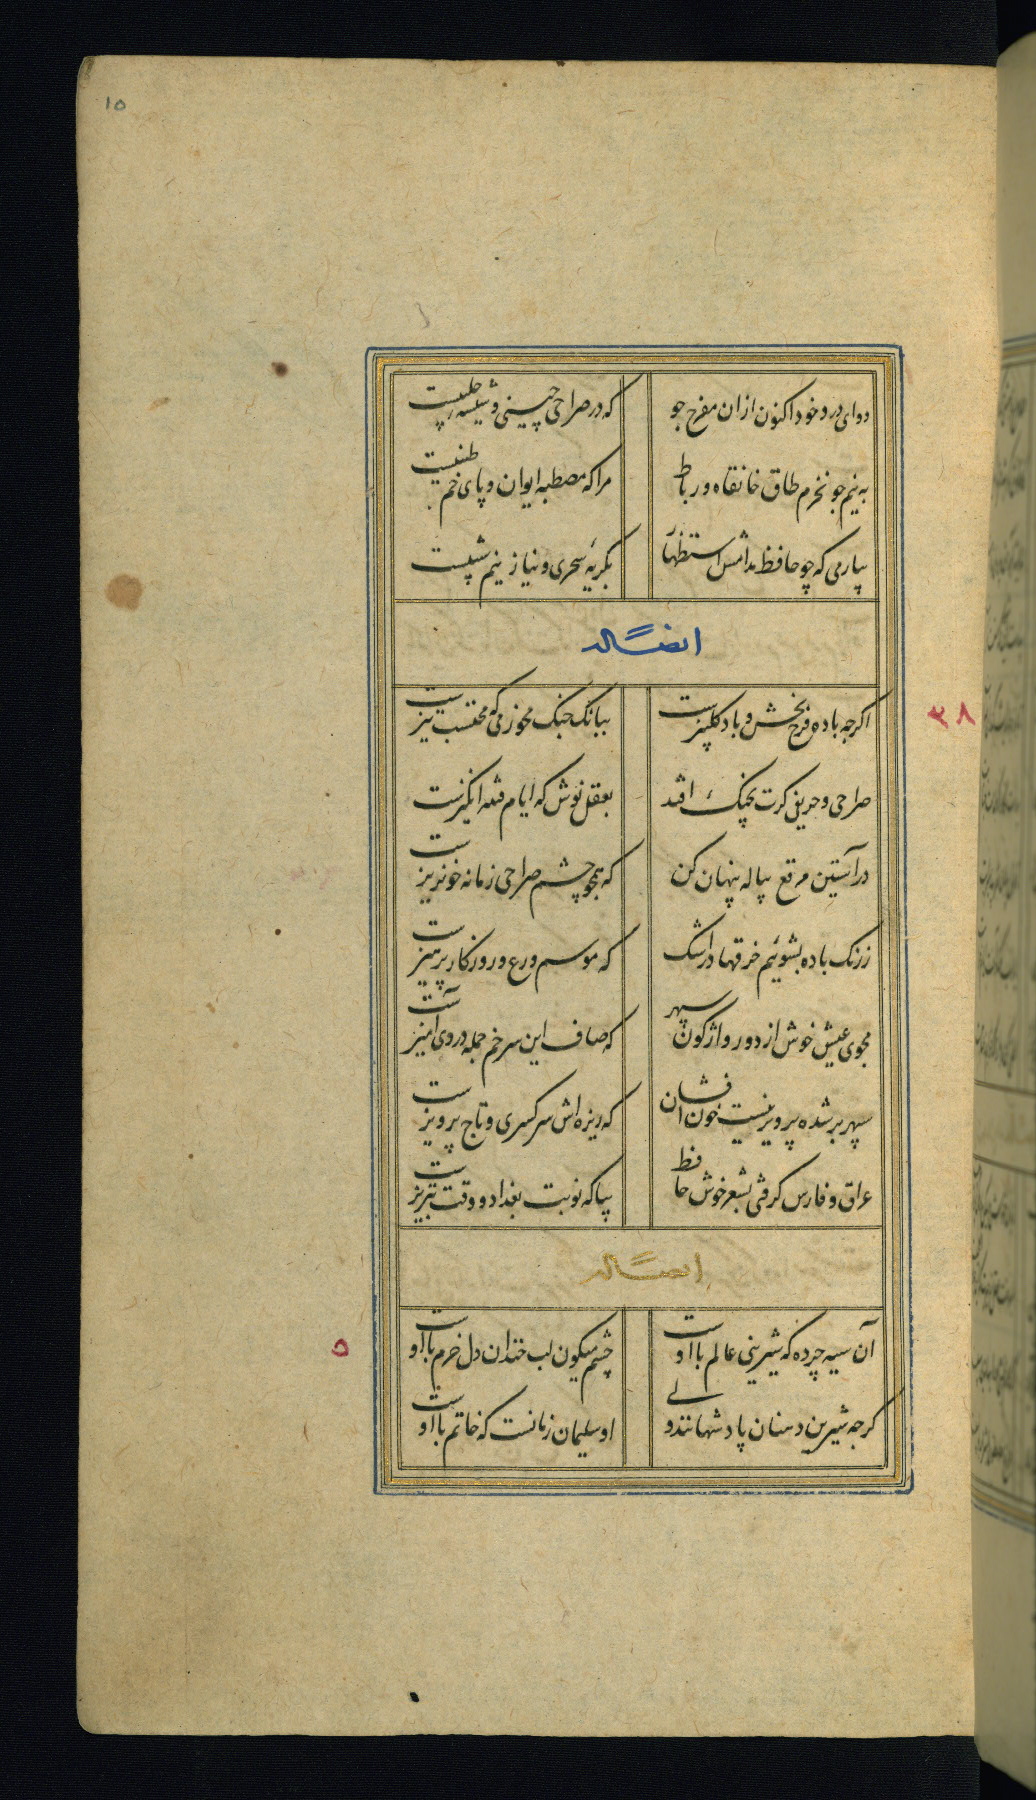 ۱۵
دوای درد خود اکنون ازان مفرح جو
که در صراحی چینی و شیشه حلبیست
به نیم جو نخرم طاق خانقاه و رباط
مرا که مصطبه ایوان و پای خم طنبیست
بیار می که چو حافظ مدامش استظهار
بگریهٔ سحری و نیاز نیم شبیست
ایضاً له
اکرچه باده فرح بخش و باد کلبیزست
ببانک چنک مخور می که محتسب تیزست
۳۸
صراحی و حریفی کرت بچنک افتد
بعقل نوش که ایام فتنه انکیزست
در آستین مرقع پیاله پنهان کن
که همچو چشم صراحی زمانه خونریزست
ز رنک باده بشوئیم خرقها در اشک
که موسم ورع و روزکار پرهیزست
مجوی عیش خوش از دور واژکون سپهر
که صاف این سر خم جمله دردی آمیزست
سپهر بر شده پرویزنیست خون افشان
که ریزه اش سر کسری و تاج پرویزست
عراق و فارس کرفتی بشعر خوش حافظ
بیا که نوبت بغداد و وقت تبریزست
ایضاً له
آن سیه چرده که شیرینی عالم با اوست
چشم میکون لب خندان دل خرم با اوست
۵
کرچه شیرین دهنان پادشهانند ولی
او سلیمان زمانست که خاتم با اوست